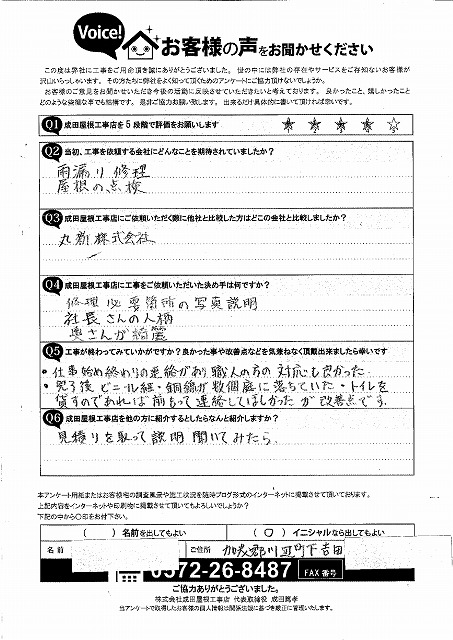 Voice!
お客様の声をお聞かせください
この度は弊社に工事をご用命頂き誠にありがとうございました。世の中には弊社の存在やサービスをご存知ないお客様が
沢山いらっしゃいます。その方たちに弊社をよく知って頂くためのアンケートにご協力頂けないでしょうか。
お客様のご意見をお聞かせいただき今後の活動に反映させていただきたいと考えております。良かったこと、嬉しかったこと
どのような些細な事でも結構です。是非ご協力お願い致します。出来るだけ具体的に書いて頂ければ幸いです。
Q1 成田屋根工事店を5段階で評価をお願いします ★★★★☆
Q2 当初、工事を依頼する会社にどんなことを期待されていましたか?
雨漏り修理
屋根の点検
Q3 成田屋根工事店にご依頼いただく際に他社と比較した方はどこの会社と比較しましたか?
株式会社
Q4 成田屋根工事店に工事をご依頼いただいた決め手は何ですか?
修理必要箇所の写真説明
社長さんの人柄
奥さんが綺麗
Q5 工事が終わってみていかがですか?良かった事や改善点などを気兼ねなく頂戴出来ましたら幸いです
・仕事始め終わりの連絡があり職人の方の対応も良かった。
・完了後ビニール紐・銅線が数個庭に落ちていた・トイレを
貸すのであれば前もって連絡してほしかったが改善点です。
Q6 成田屋根工事店を他の方に紹介するとしたらなんと紹介しますか?
見積りを取って説明聞いてみたら
本アンケート用紙またはお客様宅の調査風景や施工状況を随時ブログ形式のインターネットに掲載させて頂いております。
上記内容をインターネットや印刷物に掲載させて頂いてもよろしいでしょうか?
下記の中から〇印をお付下さい。
( )名前を出してもよい (〇)イニシャルなら出してもよい
名前 ご住所 加茂郡川辺町下吉田
0572-26-8487 FAX番号
ご協力ありがとうございました。
株式会社成田屋根工事店 代表取締役 成田崇孝
当アンケートで取得したお客様の個人情報は関係法規に基づき厳正に管理いたします。